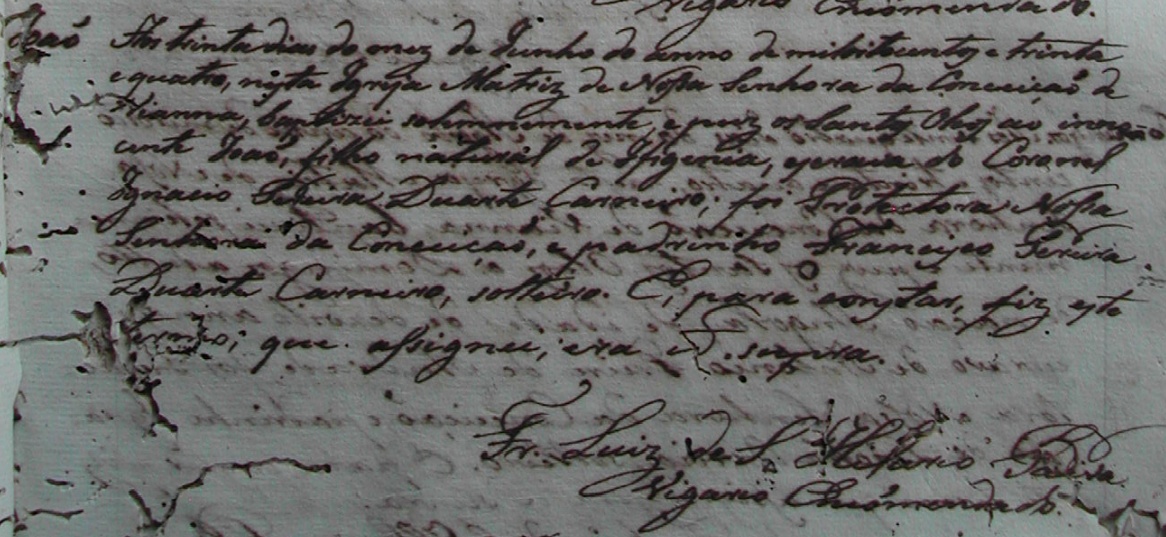 Vigario Encõmendado.
João Aos trinta dias do mez de Junho do anno de mil oitocentos e trinta
e quatro, nesta Igreja Matriz de Nossa Senhora da Conceição de
Vianna, baptizei solemnemente, e puz os Santos Oleos ao inno-
cente João, filho natural de Ifigenia, escrava do Coronel
Ignacio Pereira Duarte Carneiro; foi Protectora Nossa
Senhora da Conceição, e padrinho Francisco Pereira
Duarte Carneiro, solteiro. E, para constar, fiz este
termo; que assignei, era ut supra.
Fr. Luiz de S.
Vigario Encõmendado.